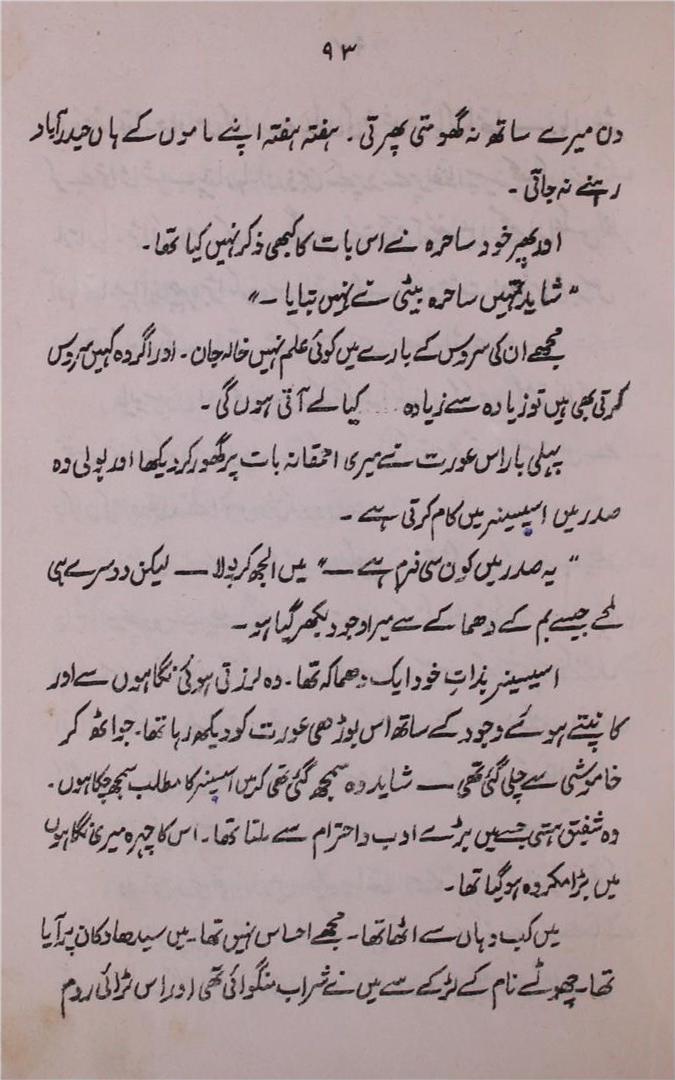 ۹۳
دن میرے ساتھ نہ گھومتی پھرتی۔ ہفتہ ہفتہ اپنے ماموں کے ہاں حیدرآباد
رہنے نہ جاتی۔
اور پھر خود ساحرہ نے اس بات کا کبھی ذکر نہیں کیا تھا۔
"شاید تمہیں ساحرہ بیٹی نے نہیں بتایا۔"
مجھے ان کی سروس کے بارے میں کوئی علم نہیں خالہ جان۔ اور اگر وہ کہیں سروس
کرتی بھی ہیں تو زیادہ سے زیادہ .... کیا لے آتی ہوں گی۔
پہلی بار اس عورت نے میری احمقانہ بات پر گھور کر دیکھا اور بولی وہ
صدر میں اسپسینر میں کام کرتی ہے۔
"یہ صدر میں کون سی فرم ہے —" میں الجھ کر بولا — لیکن دوسرے ہی
لمحے جیسے بم کے دھماکے سے میرا وجود بکھر گیا ہو۔
اسپسینر بذاتِ خود ایک دھماکہ تھا۔ وہ لرزتی ہوئی نگاہوں سے اور
کانپتے ہوئے وجود کے ساتھ اس بوڑھی عورت کو دیکھ رہا تھا۔ جو اٹھ کر
خاموشی سے چلی گئی تھی — شاید وہ سمجھ گئی تھی کہ میں اسپسینر کا مطلب سمجھ چکا ہوں۔
وہ شفیق ہستی جسے میں بڑے ادب و احترام سے ملتا تھا۔ اس کا چہرہ میری نگاہوں
میں بڑا مکروہ ہو گیا تھا۔
میں کب وہاں سے اٹھا تھا۔ مجھے احساس نہیں تھا۔ میں سیدھا دکان پر آیا
تھا۔ چھوٹے نام کے لڑکے سے میں نے شراب منگوائی تھی اور اس ٹرائی روم